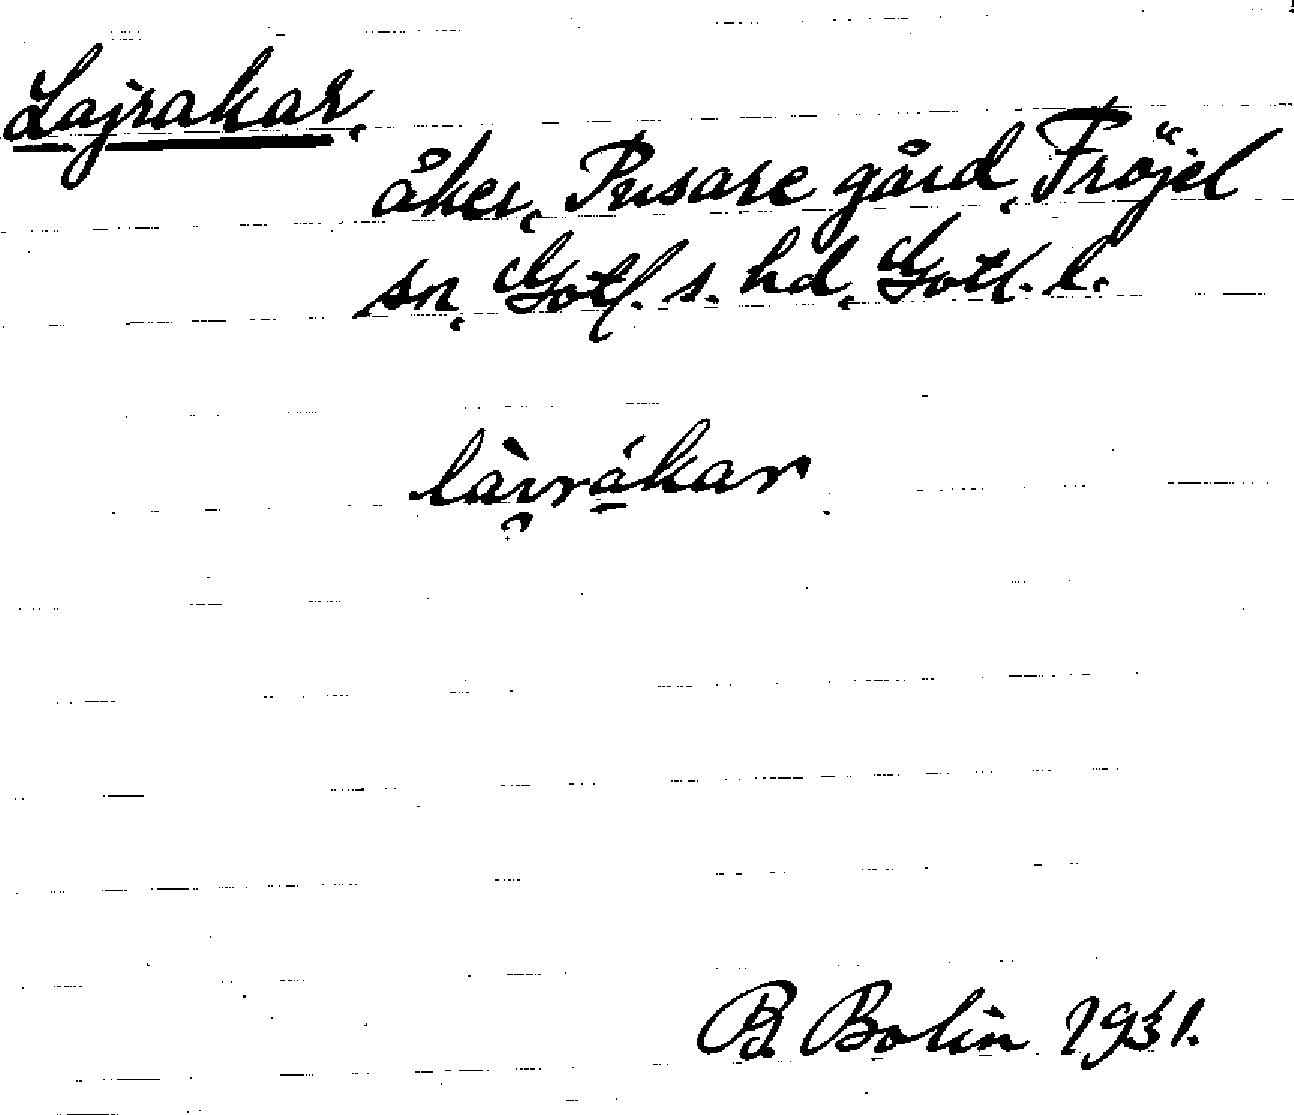 Lajrakar,
åker, Pusare gård, Fröjel
sn, Gotl. s. hd, Gotl. l.
làı̯rákar
Bolin 1931.